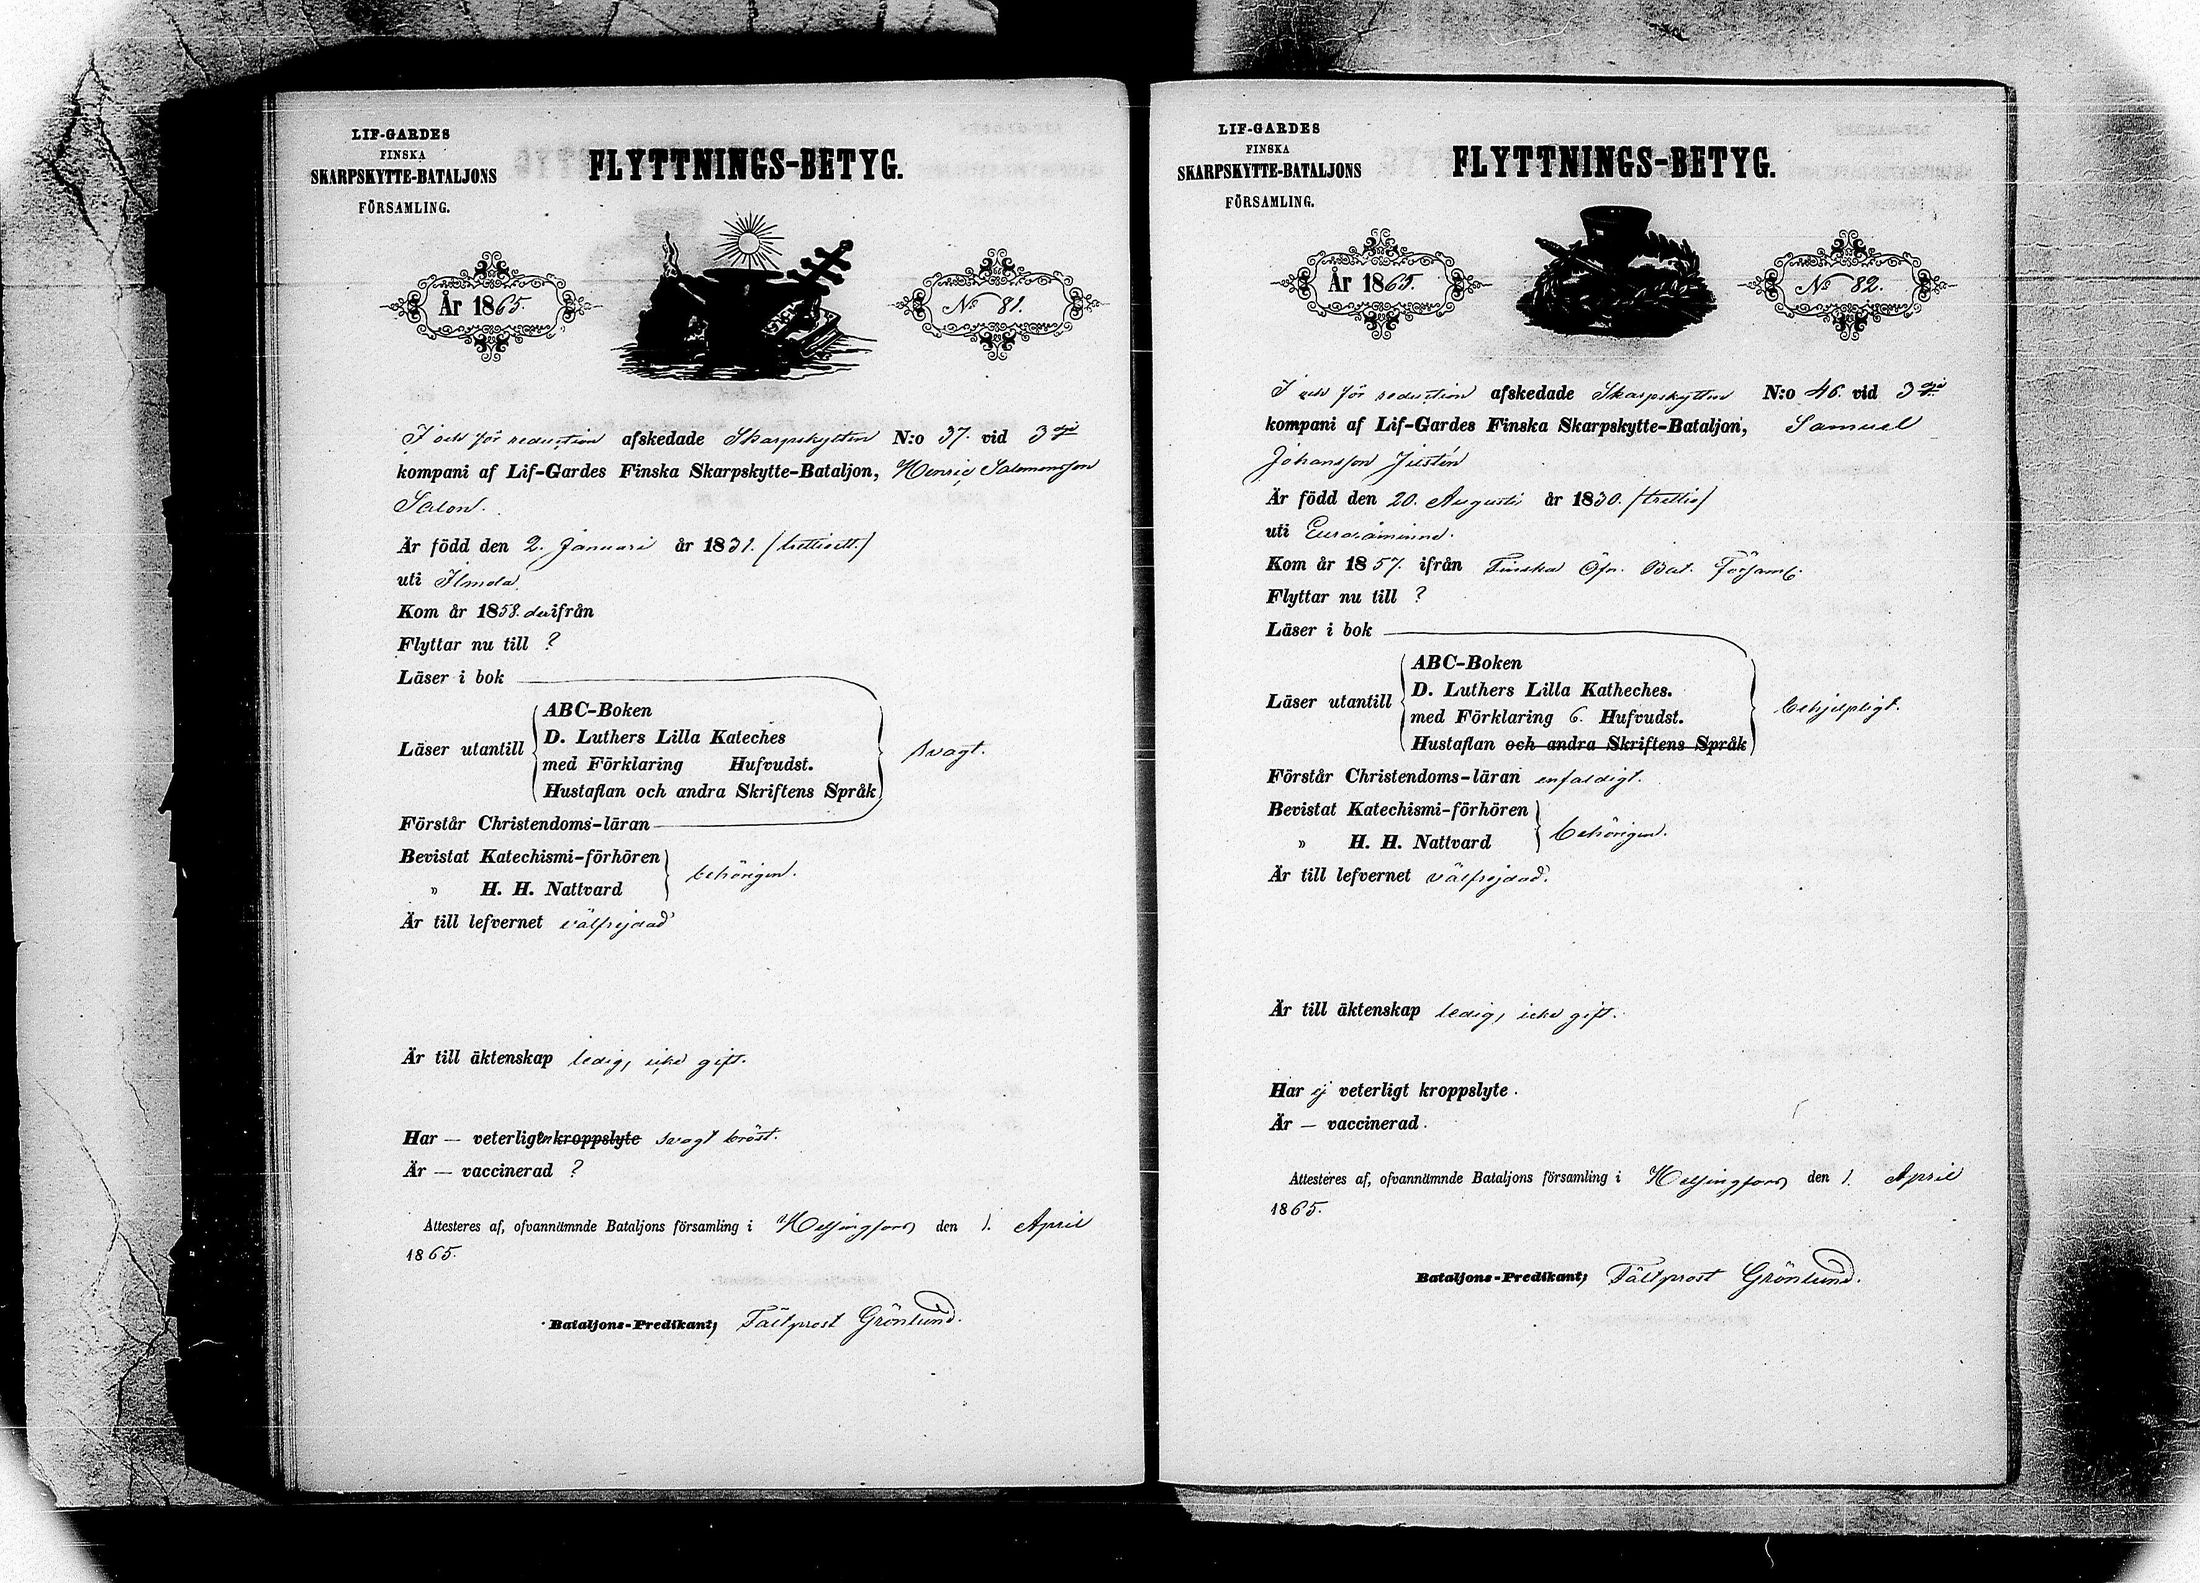 LIF-GARDES
FINSKA
SKARPSKYTTE-BATALJONS
FÖRSAMLING.
FLYTTNINGS-BETYG.
År 1865.
No 81.
I och för reduction afskedade Skarpskytten N:o 37. vid 3dje
kompani af Lif-Gardes Finska Skarpskytte-Bataljon, Henric Salomonsson
Salon.
Är född den 2. Januari år 1831. /trettioett./
uti Ilmola
Kom år 1858. derifrån
Flyttar nu till ?
Läser i bok
Läser utantill
ABC-Boken
D. Luthers Lilla Kateches
med Förklaring Hufvudst.
Hustaflan och andra Skriftens Språk
svagt.
Förstår Christendoms-läran
Bevistat Katechismi-förhören
" H. H. Nattvard
behörigen.
Är till lefvernet välfrejdad
Är till äktenskap ledig, icke gift.
Har — veterligen kroppslyte svagt bröst.
Är — vaccinerad ?
Attesteres af, ofvannämnde Bataljons församling i Helsingfors den 1. April
1865.
Bataljons-Predikant, Fältprost Grönlund.
LIF-GARDES
FINSKA
SKARPSKYTTE-BATALJONS
FÖRSAMLING.
FLYTTNINGS-BETYG.
År 1865.
No 82.
I och för reduction afskedade Skarpskytten N:o 46. vid 3dje
kompani af Lif-Gardes Finska Skarpskytte-Bataljon, Samuel
Johansson Justén
Är född den 20. Augusti år 1830. /trettio/
uti Euraåminne.
Kom år 1857. ifrån Finska Öfn. Bat. Församl.
Flyttar nu till ?
Läser i bok
Läser utantill
ABC-Boken
D. Luthers Lilla Katheches.
med Förklaring 6. Hufvudst.
Hustaflan och andra Skriftens Språk
behjelpligt.
Förstår Christendoms-läran enfaldigt.
Bevistat Katechismi-förhören
" H. H. Nattvard
behörigen.
Är till lefvernet välfrejdad.
Är till äktenskap ledig, icke gift.
Har ej veterligt kroppslyte.
Är — vaccinerad.
Attesteres af, ofvannämnde Bataljons församling i Helsingfors den 1. April
1865.
Bataljons-Predikant, Fältprost Grönlund.